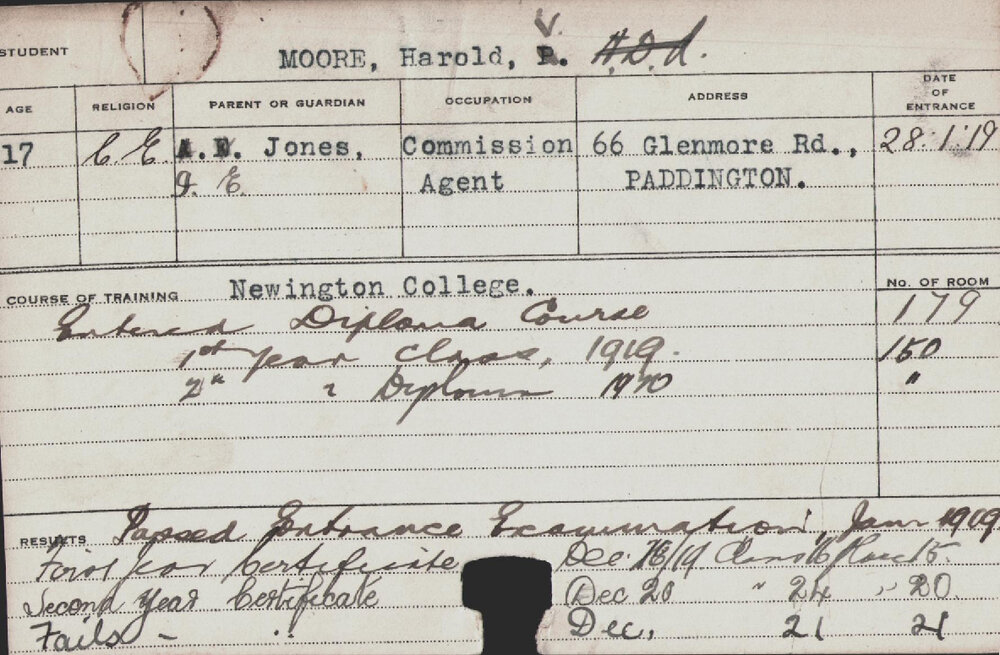 STUDENT MOORE, Harold, V. R. H.D.A.
AGE RELIGION PARENT OR GUARDIAN OCCUPATION ADDRESS DATE OF ENTRANCE
17 C E A.E. Jones, Commission 66 Glenmore Rd., 28.1.19
J. E. Agent PADDINGTON.
COURSE OF TRAINING Newington College. No. OF ROOM
Entered Diploma Course 179
1st year Class, 1919. 150
2n " Diploma 1920 "
RESULTS Passed Entrance Examination, Jan 1919
First year Certificate Dec. /19 Class 16 15.
Second Year Certificate Dec 20 " 24 " 20.
Fails - " Dec. 21 21